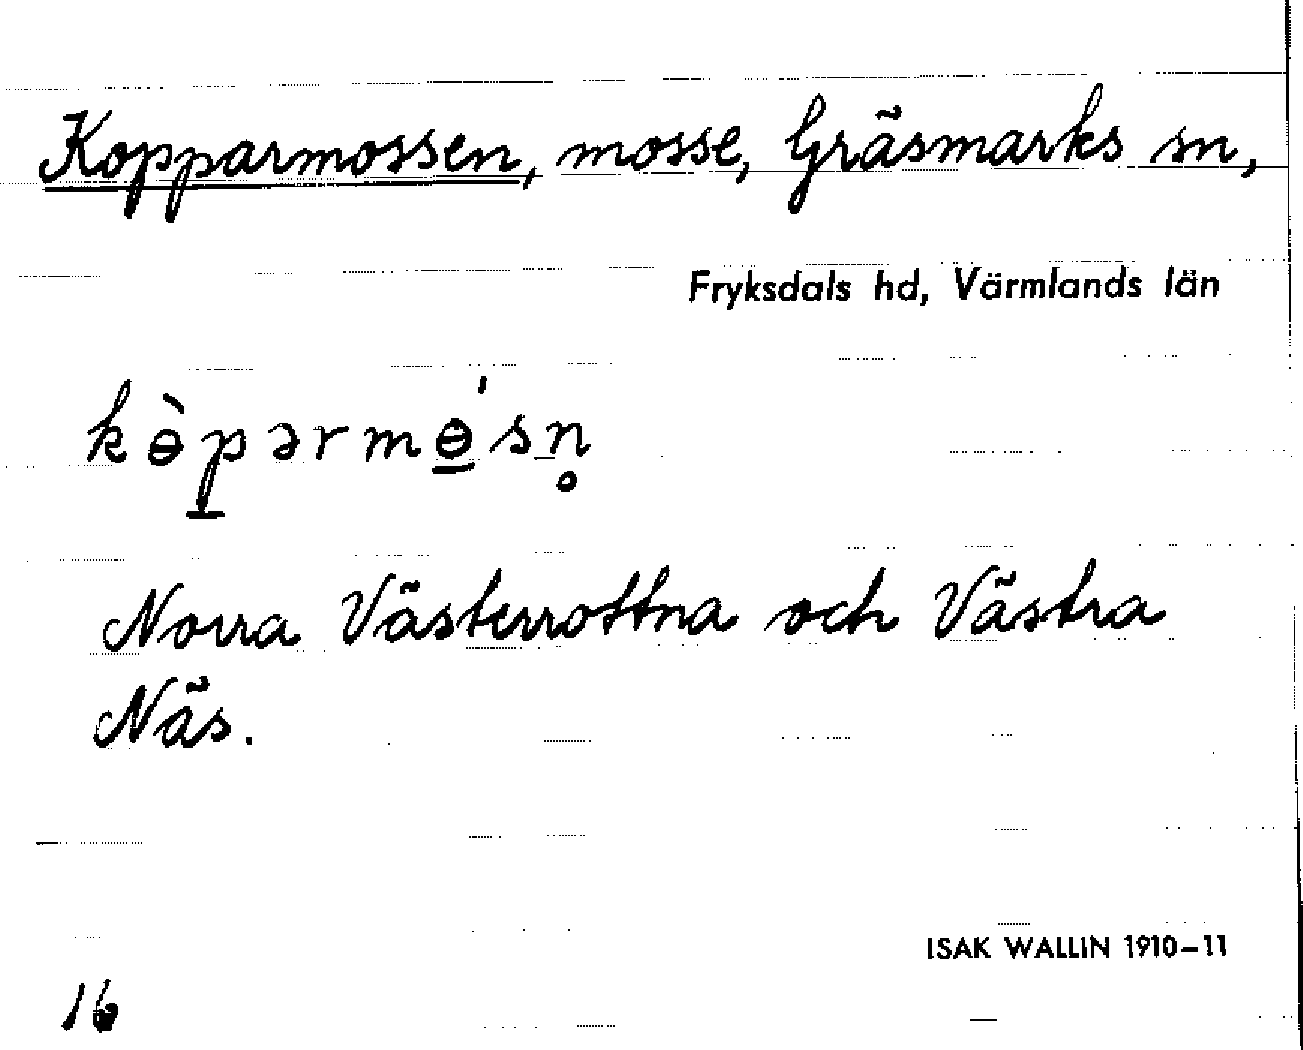 Kopparmossen, mosse, Gräsmarks sn,
Fryksdals hd, Värmlands län
kɵ̀p̲ərmɵ̲́sn̥
Norra Västerrottna och Västra
Näs.
ISAK WALLIN 1910–11
16